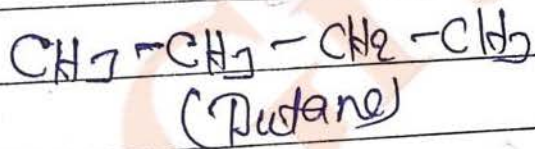 CH3 - CH3 - CH2 - CH3
(Butane)